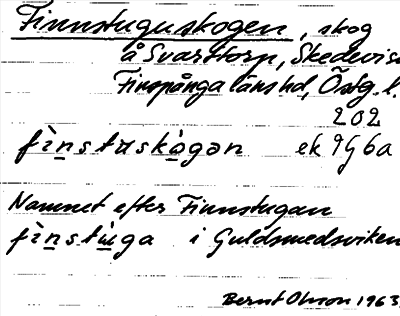 Finnstuguskogen, skog
å Svarttorp, Skedevi s
Finspånga länshd, Östg. l.
202
fìnstuskògən ek 9G6a
Namnet efter Finnstugan
fìnstùga i Guldsmedsviken
Bernt Olsson 1963